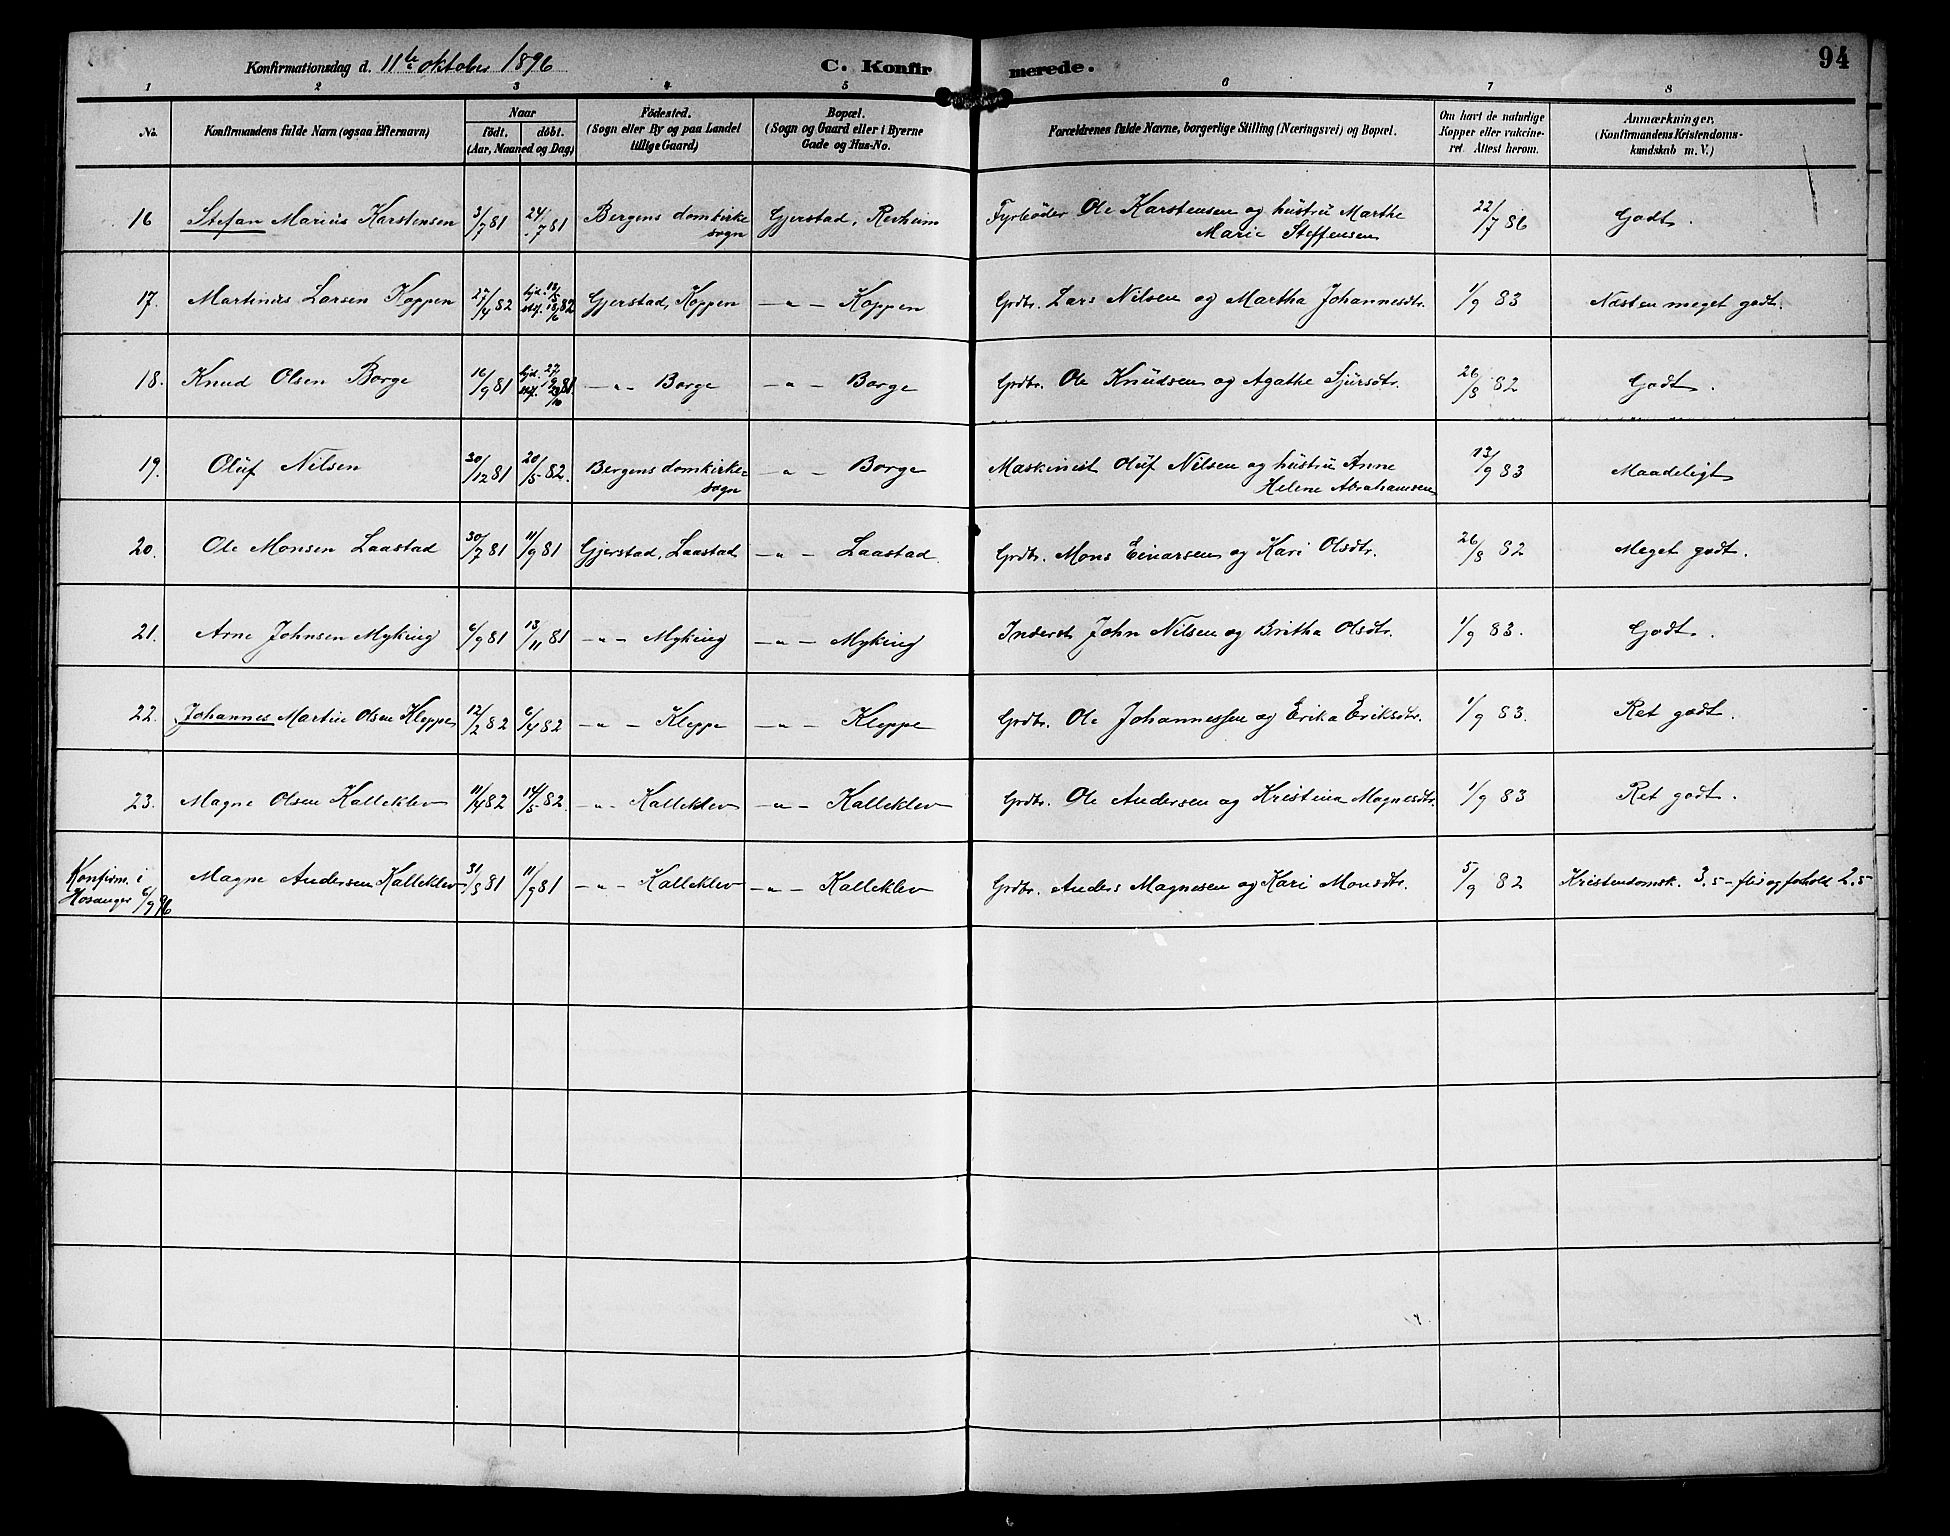 Konfirmationsdag d. 11te oktober 1896
C. Konfirmerede.
94
1 2 3 4 5 6 7 8
No. Konfirmandens fulde Navn (ogsaa Efternavn) Naar födt. döbt. (Aar, Maaned og Dag) Födested. (Sogn eller By og paa Landet tillige Gaard) Bopæl. (Sogn og Gaard eller i Byerne Gade og Hus-No. Forældrenes fulde Navne, borgerlige Stilling (Næringsvei) og Bopæl. Om havt de naturlige Kopper eller vakcineret. Attest herom. Anmærkninger. (Konfirmandens Kristendomskundskab m. V.)
16 Stefan Marius Karstensen 3/7 81 24/7 81 Bergens domkirkesogn Gjerstad, Revheim Fyrböder Ole Karstensen og hustru Marthe Marie Steffensen 22/7 86 Godt.
17. Martinus Larsen Koppen 27/4 82 hjd. 18/5 stf. 18/6 82 Gjerstad, Koppen — " — Koppen Grdbr. Lars Nilsen og Martha Johannesdtr. 1/9 83 Næsten meget godt.
18. Knud Olsen Borge 16/9 81 hjd. 27/9 81. — " — Borge — " — Borge Grdbr. Ole Knudsen og Agathe Sjursdtr. 26/8 82 Godt.
19. Oluf Nilsen 30/12 81 20/5 82. Bergens domkirkesogn — " — Borge Maskinist Oluf Nilsen og hustru Anne Helene Abrahamsen 13/9 83 Maadeligt
20. Ole Monsen Laastad 30/7 81 11/9 81 Gjerstad, Laastad — " — Laastad. Grdbr. Mons Einarsen og Kari Olsdtr. 26/8 82 Meget godt.
21. Arne Johnsen Myking 6/9 81 13/11 81 — " — Myking — " — Myking Inderst John Nilsen og Britha Olsdtr. 1/9 83. Godt.
22. Johannes Martin Olsen Kleppe 12/2 82 6/4 82 — " — Kleppe — " — Kleppe Grdbr. Ole Johannessen og Erika Eriksdtr. 1/9 83. Ret godt.
23. Magne Olsen Kalleklev 11/4 82 14/5 82. — " — Kalleklev — " — Kalleklev Grdbr. Ole Andersen og Kristina Magnesdtr. 1/9 83 Ret godt.
Konfirm. i Hosanger 6/9 96 Magne Andersen Kalleklev 31/8 81 11/9 81 — " — Kalleklev — " — Kalleklev Grdbr. Anders Magnesen og Kari Monsdtr. 5/9 82 Kristendomsk. 3,5 — flid og forhold 2,5